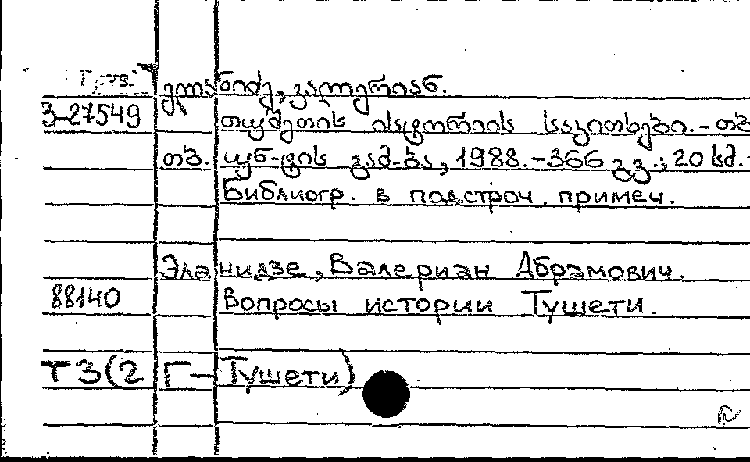 Груз.
ელანიძე, ვალერიან.
3-27549
თუშეთის ისტორიის საკითხები. - თბ
თბ. უნ-ტის გამ-ბა, 1988. - 366 გვ.; 20 სმ. -
Библиогр. в подстроч. примеч.
Эланидзе, Валериан Абрамович.
88140
Вопросы истории Тушети.
Т3(2Г-Тушети)